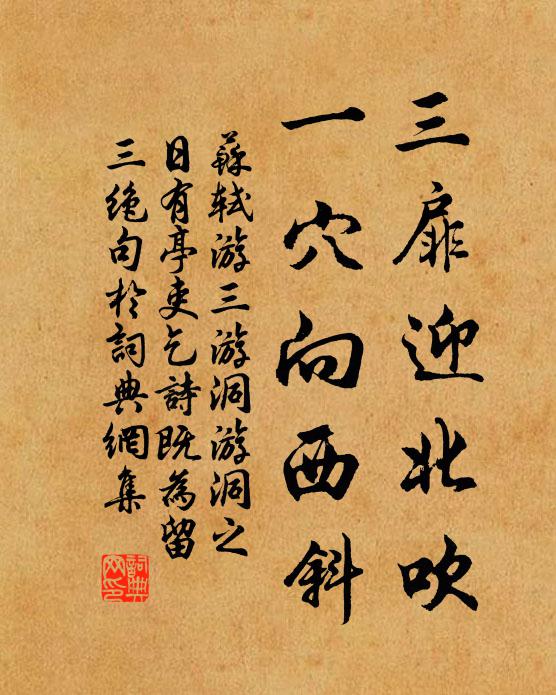 三扉迎北吹
一穴向西斜
蘇軾游三游洞游洞之
日有亭吏乞詩既為留
三絶句於詞典網集
詞典
网印